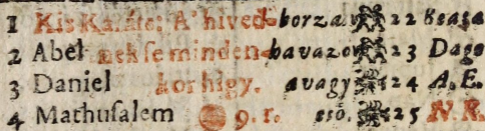 1 Kis Karáts: A' hived- borzav 22 Beata
2 Abel nek se minden- havazo 23 Dago
3 Daniel kor higy. avagy 24 A. E.
4 Mathusalem 9. r. eső. 25 N. R.